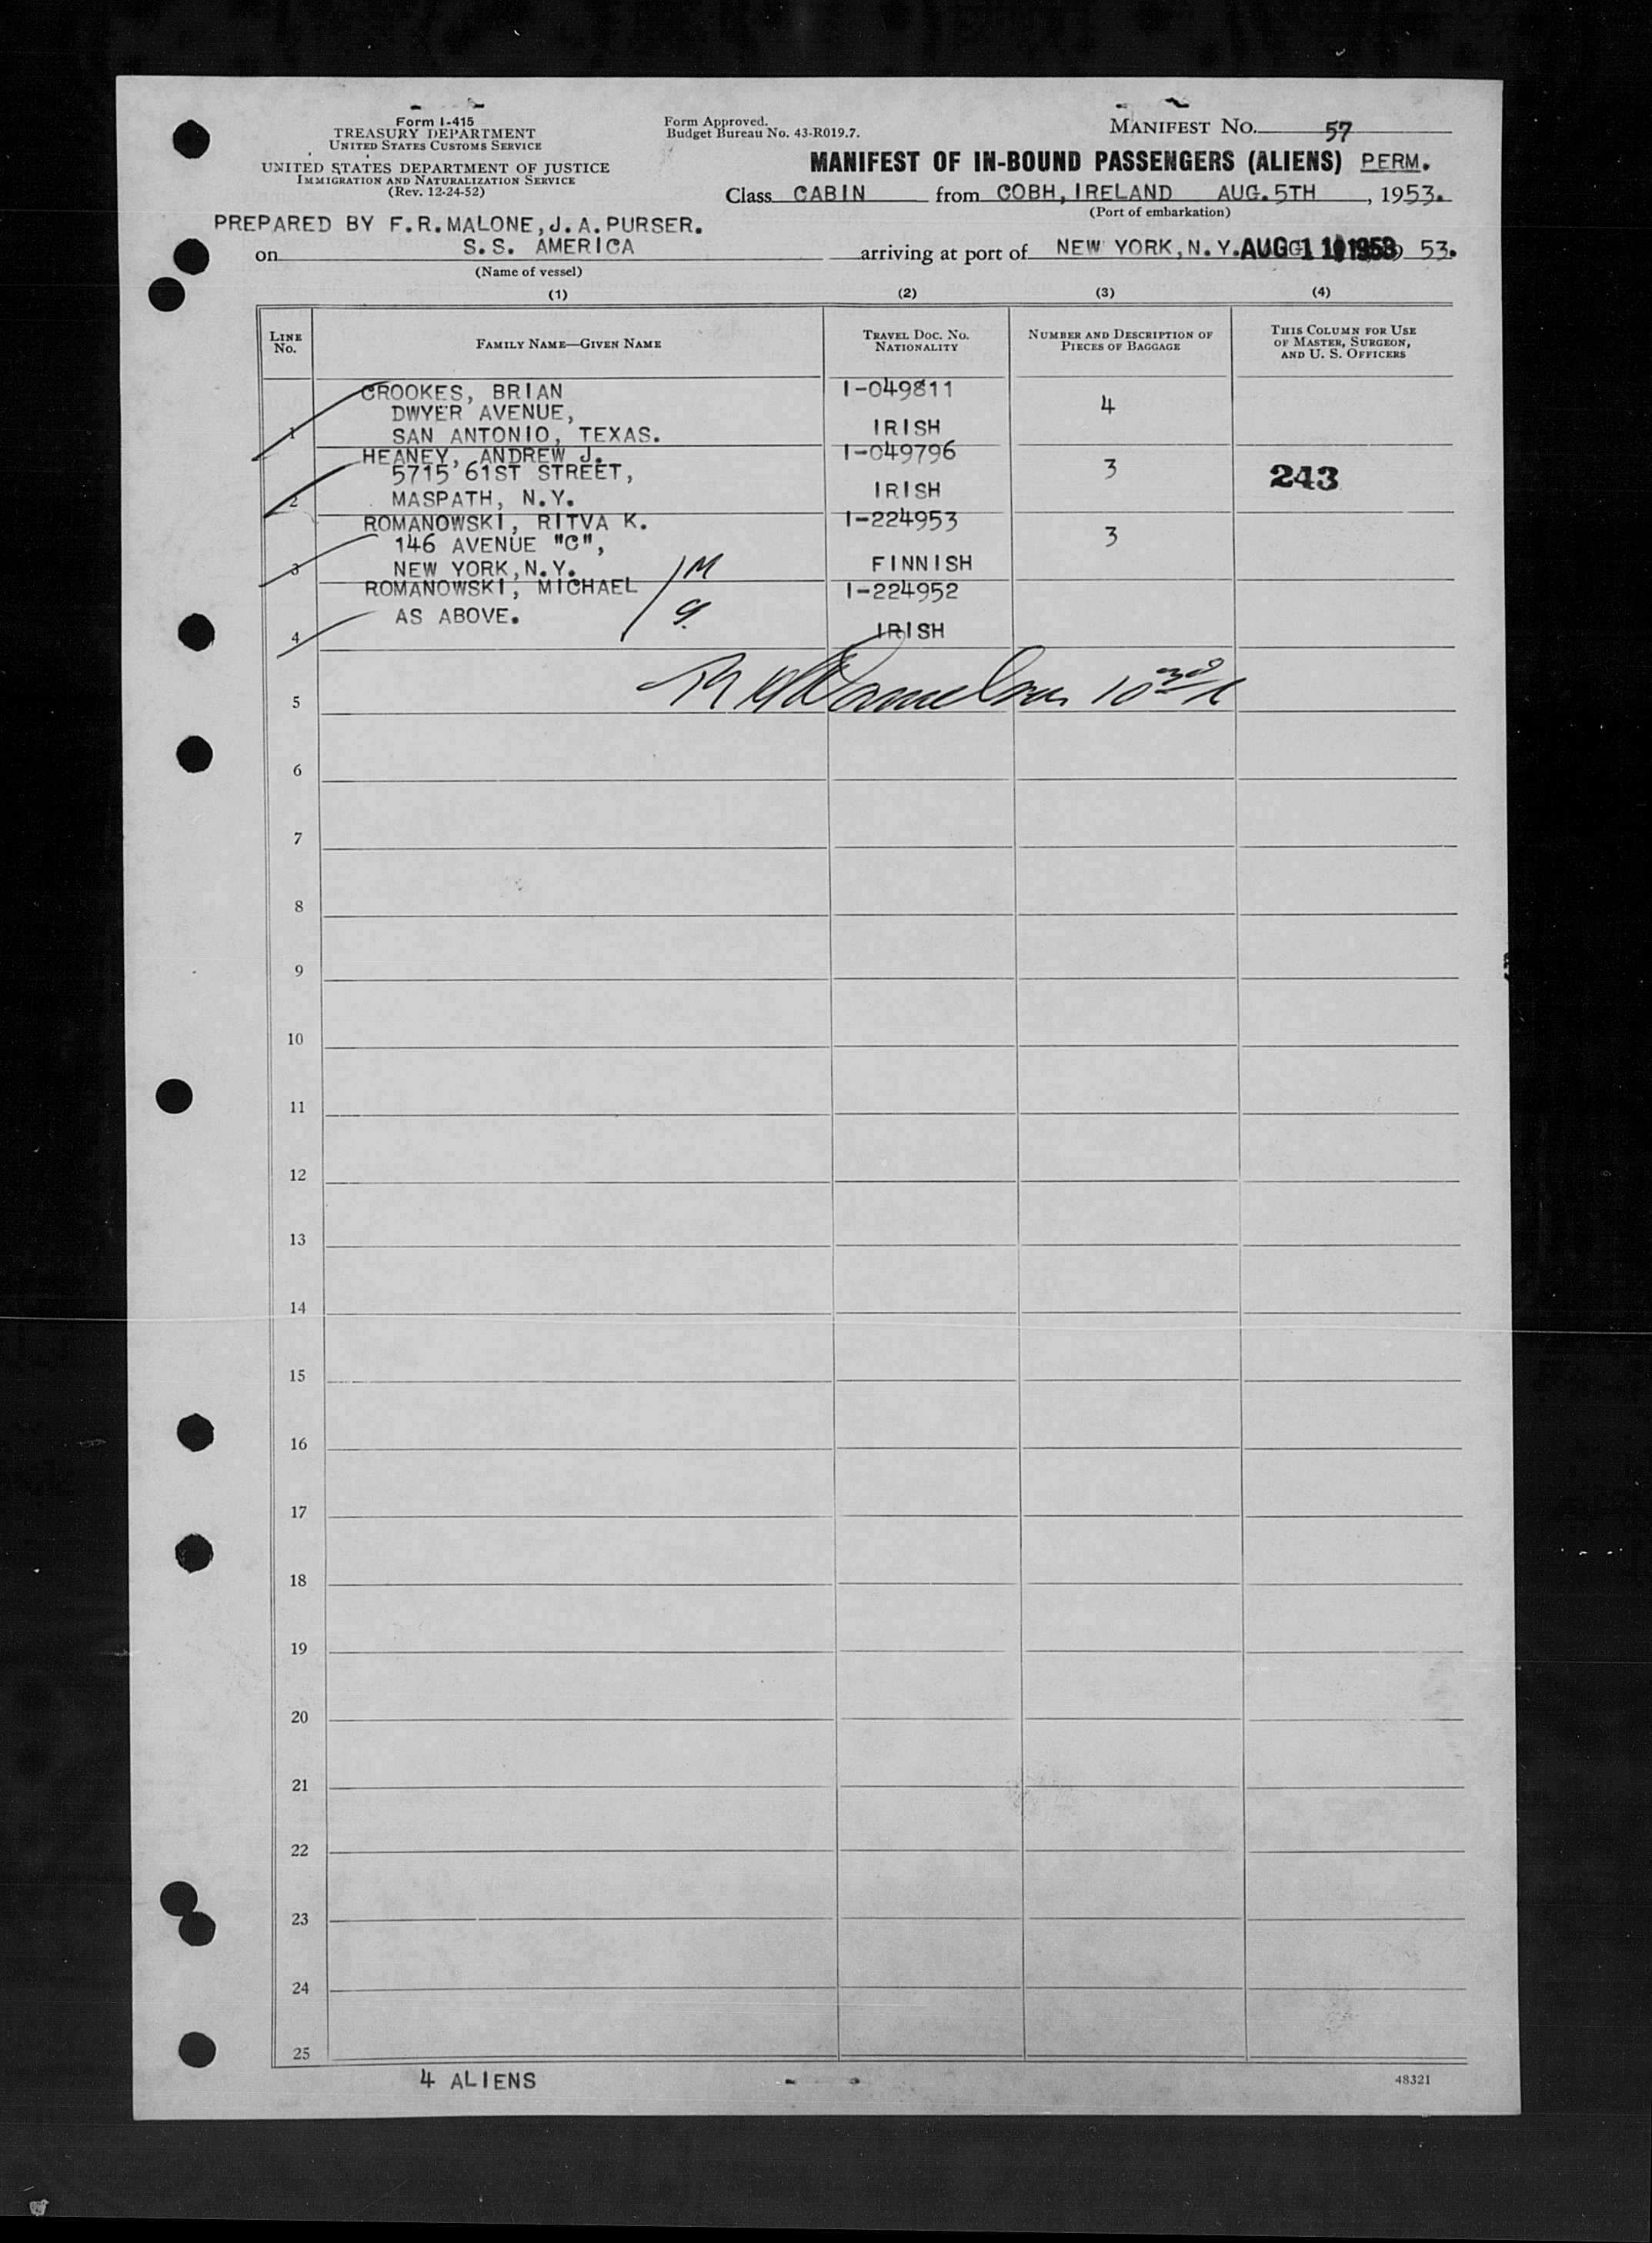 Form I-415
TREASURY DEPARTMENT
UNITED STATES CUSTOMS SERVICE
UNITED STATES DEPARTMENT OF JUSTICE
IMMIGRATION AND NATURALIZATION SERVICE
(Rev. 12-24-52)
Form Approved.
Budget Bureau No. 43-R019.7.
MANIFEST No. 57
MANIFEST OF IN-BOUND PASSENGERS (ALIENS) PERM.
Class CABIN from COBH, IRELAND AUG. 5TH , 1953.
(Port of embarkation)
PREPARED BY F.R.MALONE, J.A.PURSER.
on S.S. AMERICA arriving at port of NEW YORK, N.Y. AUG 1953 53.
(Name of vessel)
(1) (2) (3) (4)
LINE No. FAMILY NAME—GIVEN NAME TRAVEL DOC. No. NATIONALITY NUMBER AND DESCRIPTION OF PIECES OF BAGGAGE THIS COLUMN FOR USE OF MASTER, SURGEON, AND U. S. OFFICERS
CROOKES, BRIAN I-049811
DWYER AVENUE, 4
1 SAN ANTONIO, TEXAS. IRISH
HEANEY, ANDREW J. I-049796
5715 61ST STREET, 3 243
2 MASPATH, N.Y. IRISH
ROMANOWSKI, RITVA K. I-224953
146 AVENUE "C", 3
3 NEW YORK, N.Y. FINNISH
ROMANOWSKI, MICHAEL M I-224952
AS ABOVE.
4 IRISH
5
6
7
8
9
10
11
12
13
14
15
16
17
18
19
20
21
22
23
24
25
4 ALIENS
48321